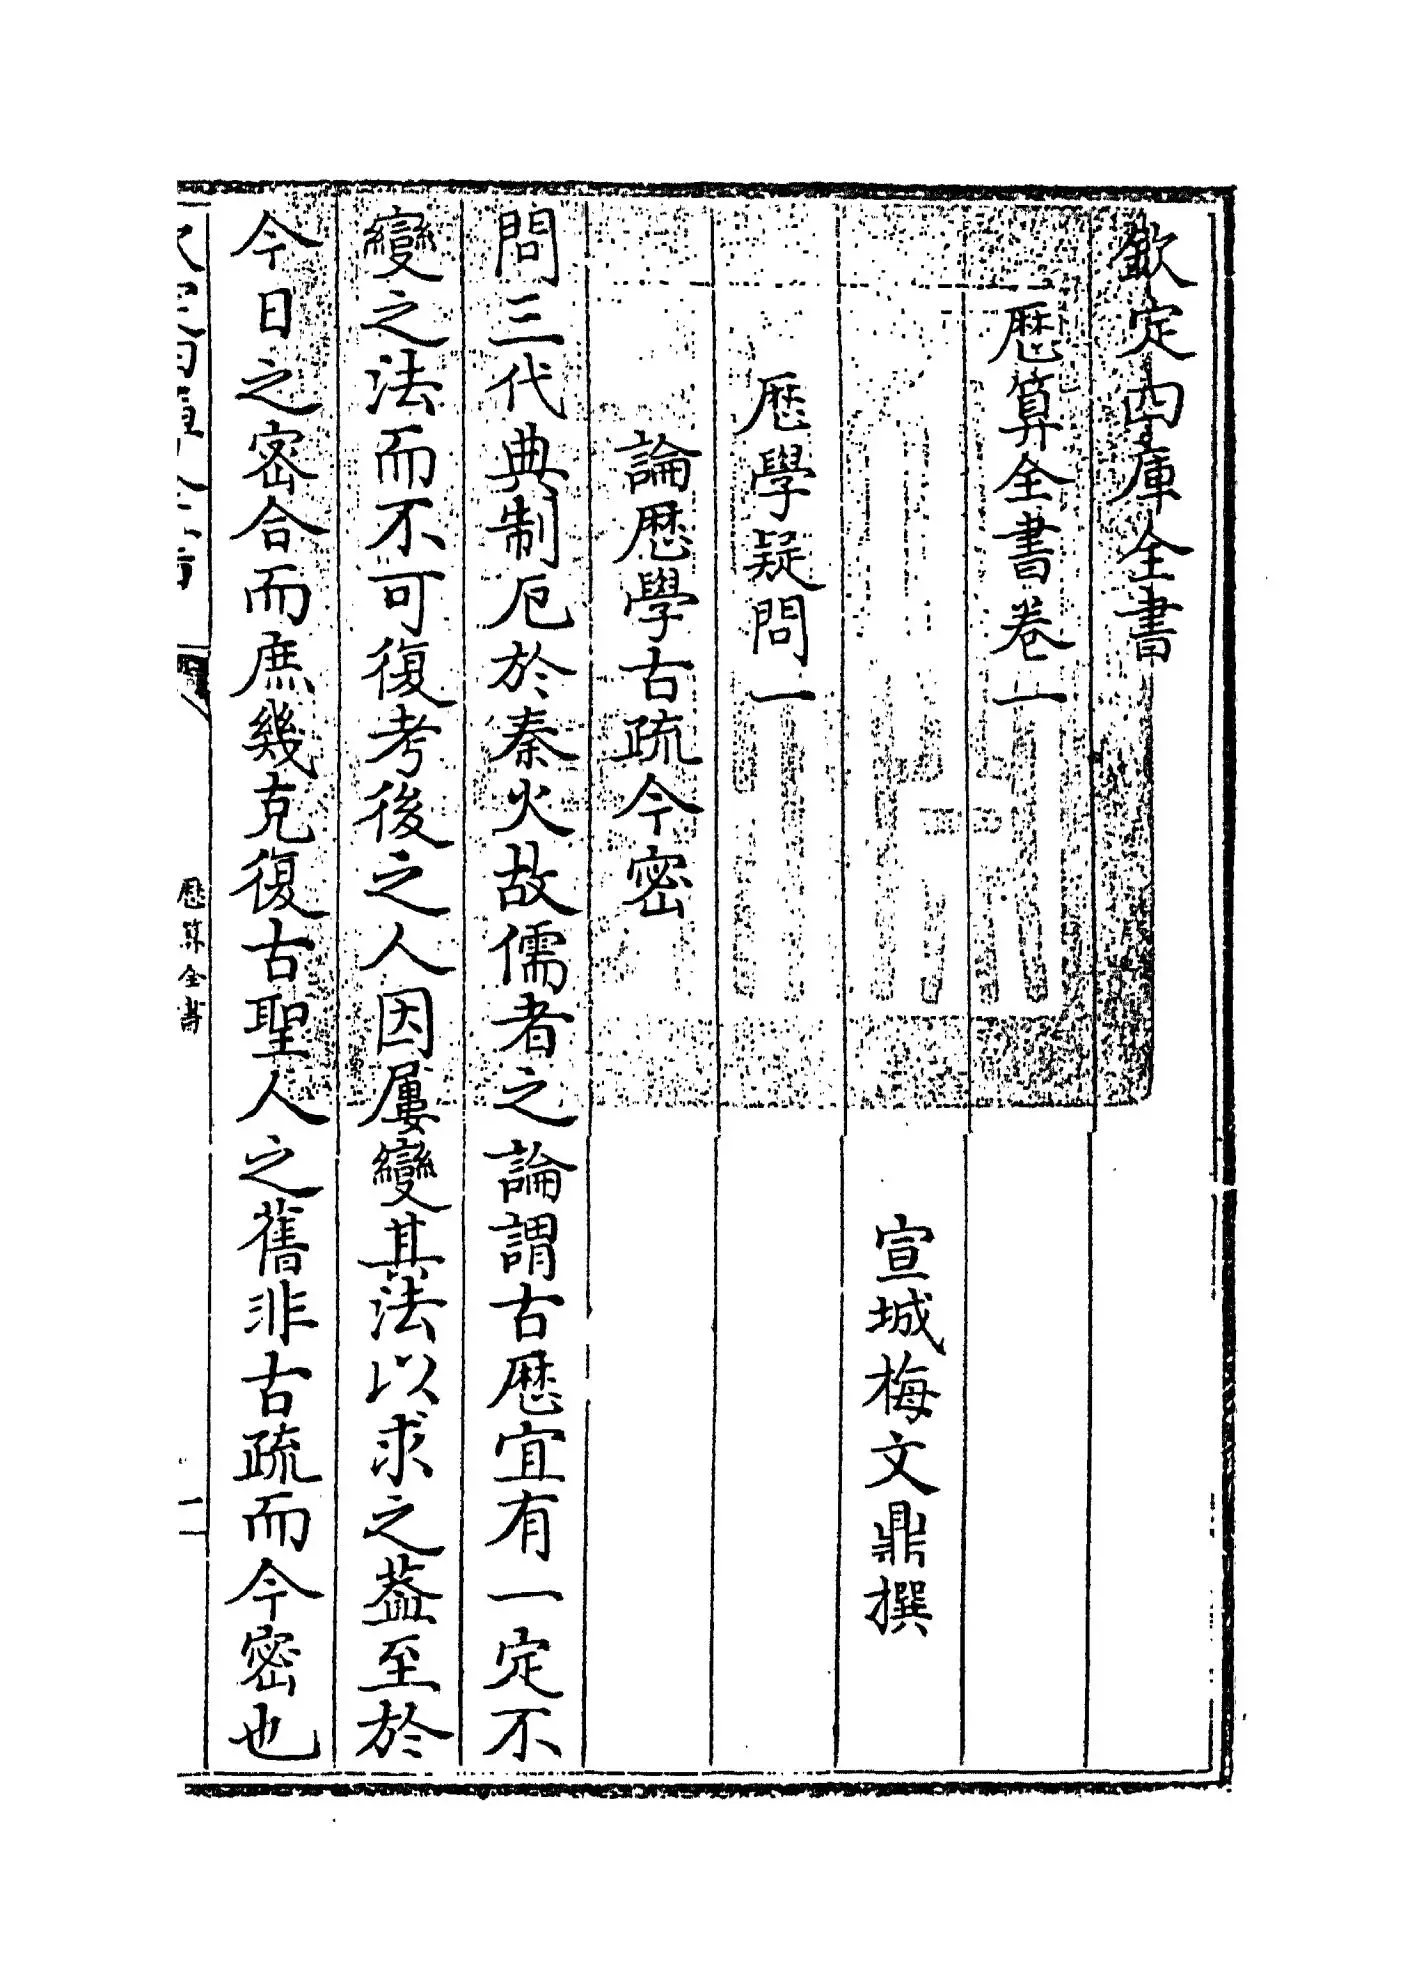 欽定四庫全書
厯算全書卷一
宣城梅文鼎撰
厯學疑問一
論厯學古疏今密
問三代典制厄於秦火故儒者之論謂古厯宜有一定不
變之法而不可復考後之人因屢變其法以求之葢至於
今日之宻合而庶幾克復古聖人之舊非古疏而今密也
厯算全書
一